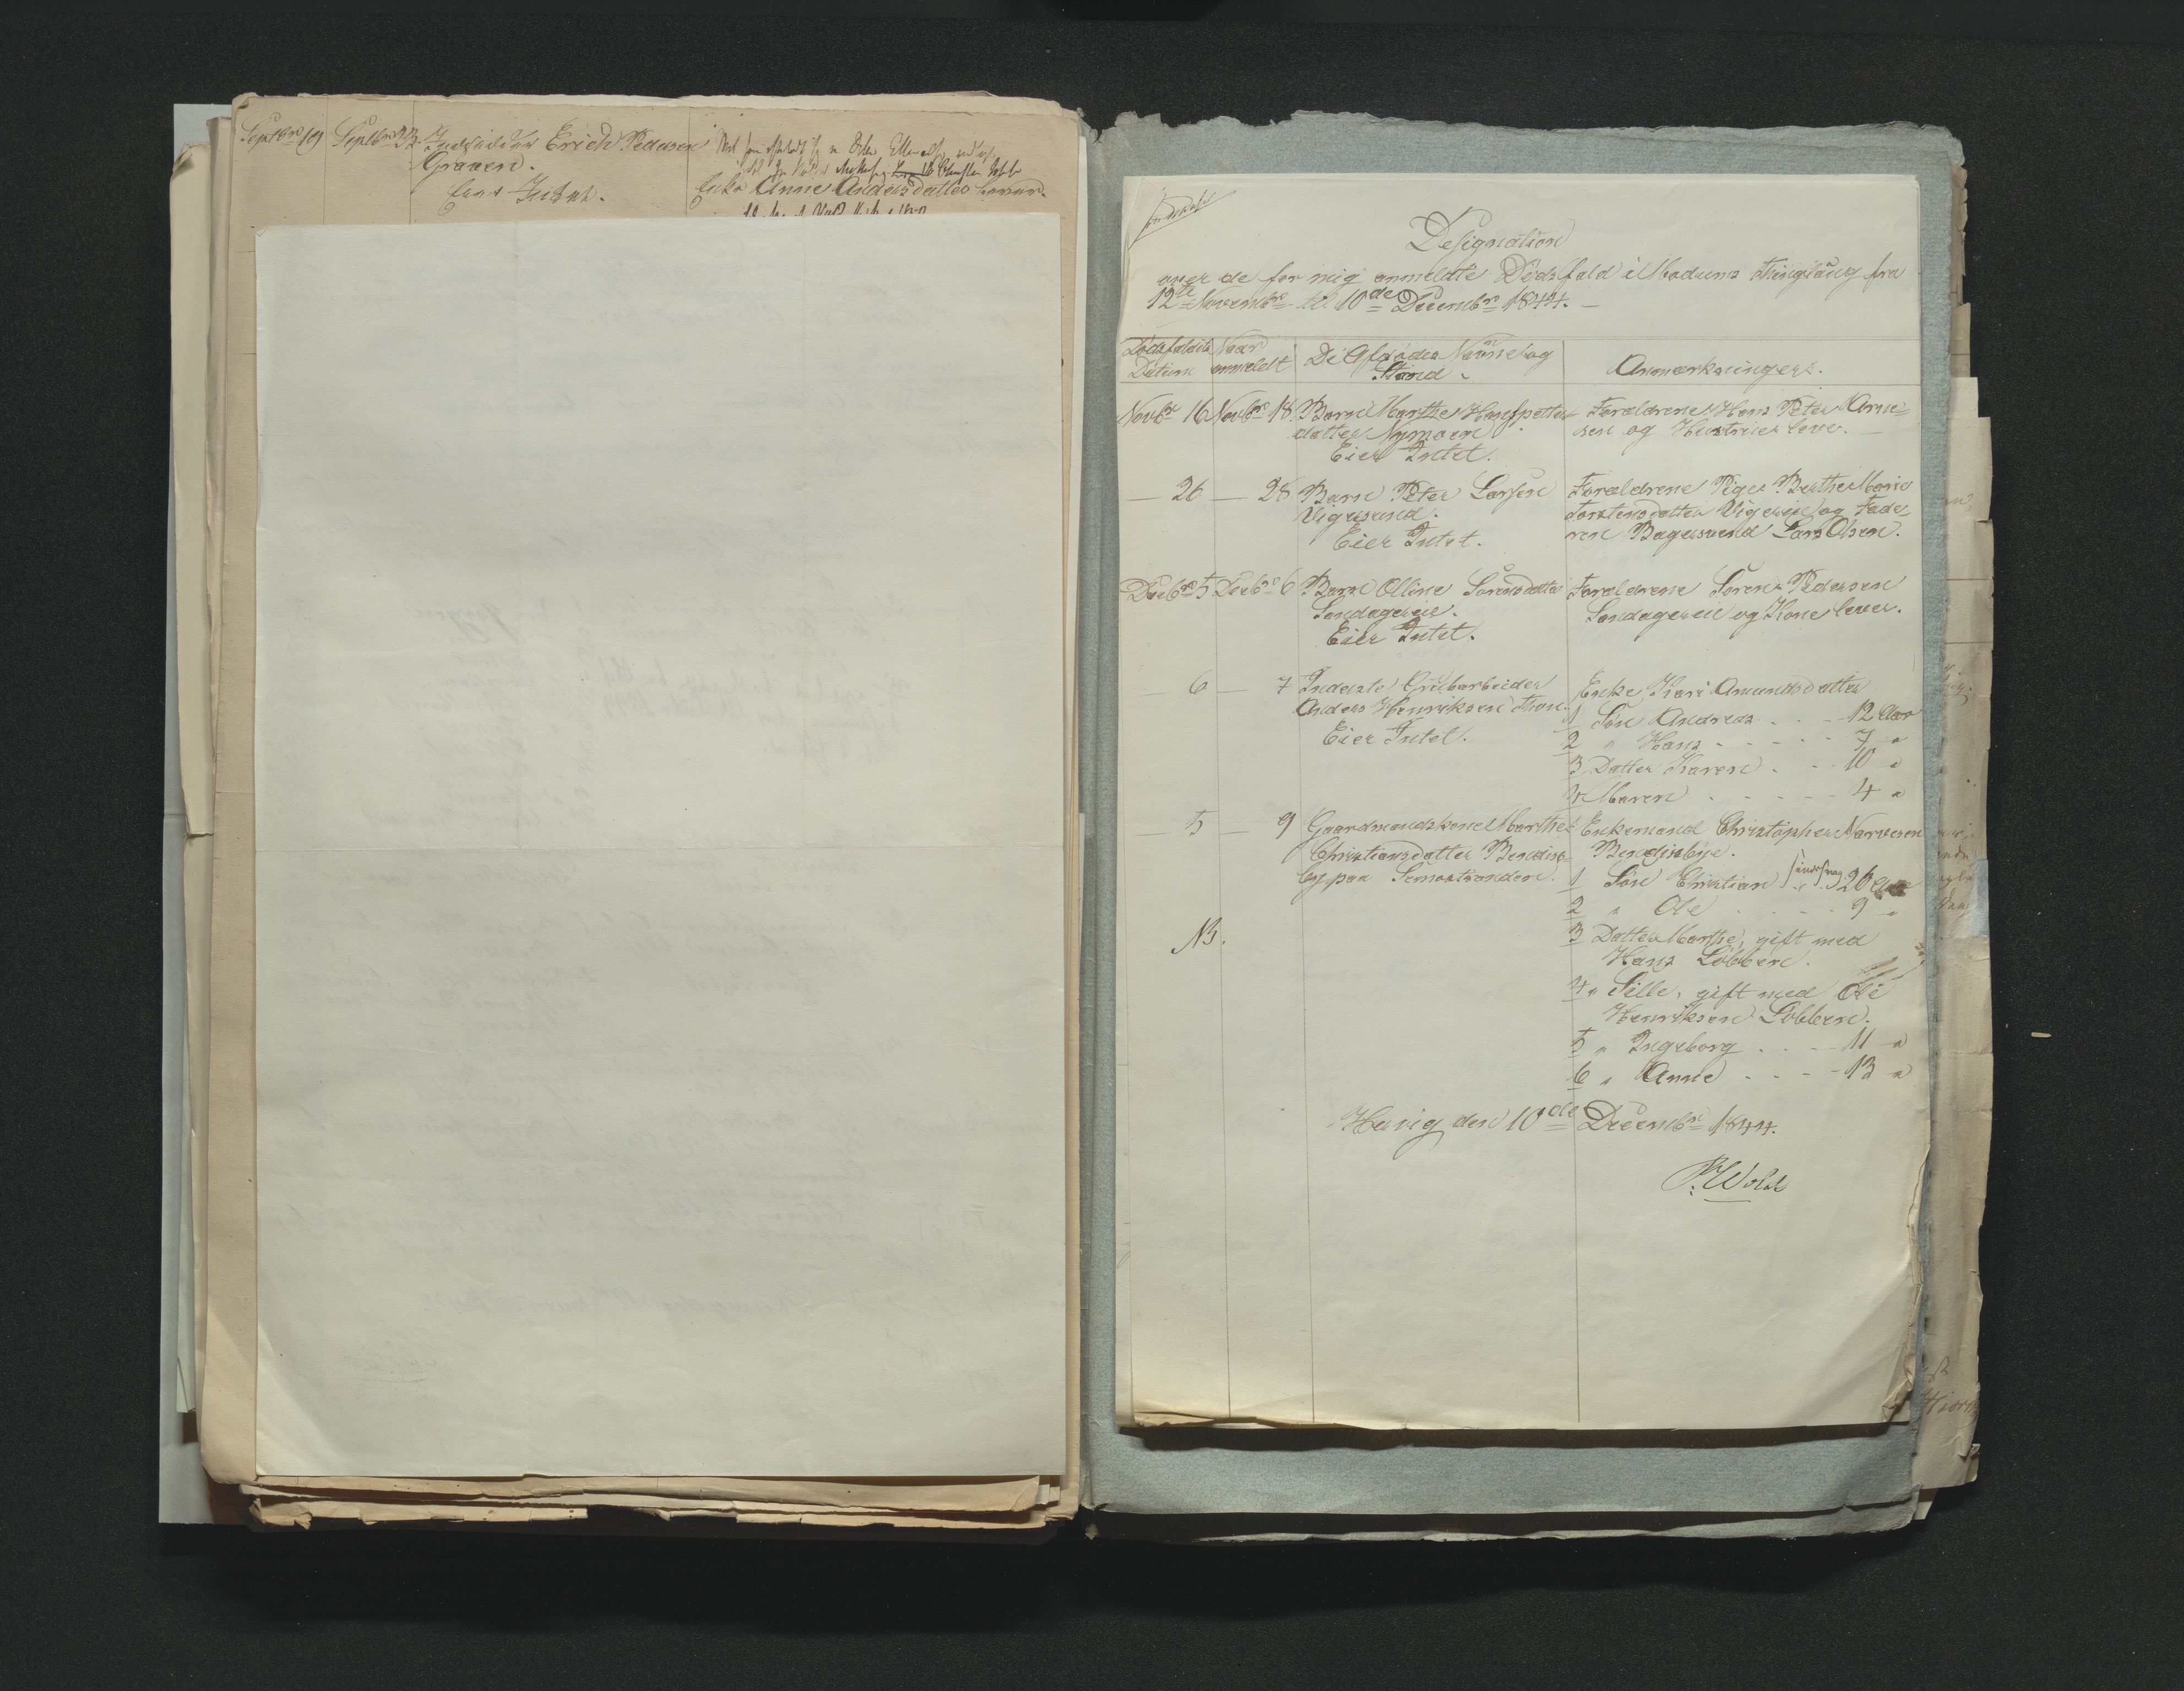 Septbr 19 Septbr 23 Inderster Erich Pedersen
Graaen.
Eier Intet.
Enke Anne Andersdatter lever.
Designation
over de for mig anmeldte Dødsfald i Modums Thinglaug fra
12te Novembr til 10de Decembr 1844. —
Dødsfaldets Datum
Naar anmeldt
De Afdødes Navne og Stand.
Anmærkninger.
Novbr 16 Novbr 18 Barn Marthe Hanspetter-
datter Nymoen
Eier Intet.
Forældrene Hans Peter Arne-
sen og Hustrue lever. —
— 26 — 28 Barn Peter Larsen
Vigersund.
Eier Intet.
Forældrene Pige Berthe Marie
Torstensdatter Vigereie og Fade
ren Bagersvend Lars Olsen.
Decbr 5 Decbr 6 Barn Olline Sørensdatter
Søndagereie.
Eier Intet.
Forældrene Søren Pedersen
Søndagereie og Kone lever.
— 6 — 7 Inderste Grubarbeider
Anders Henriksen Thon.
Eier Intet.
Enke Kari Amundsdatter
1 Søn Andreas . . . 12 Aar
2 " Hans . . . . . 7 "
3 Datter Karen . . . 10 "
4 Maren . . . . . 4 "
— 5 — 9 Gaardmandskone Marthe
Christiansdatter Bendixe-
by paa Semostranden.
NB.
Enkemand Christopher Narvesen
Bendixebye.
1 Søn Christian 26 Aar
2 " Ole . . . . 9 "
3 Datter Marthe, gift med
Hans Løbben.
4 " Sille, gift med Ole
Henriksen Løbben.
5 " Ingeborg . . . . 11 "
6 " Anne . . . . 13 "
Hævig den 10de Decembr 1844.
P. Wold